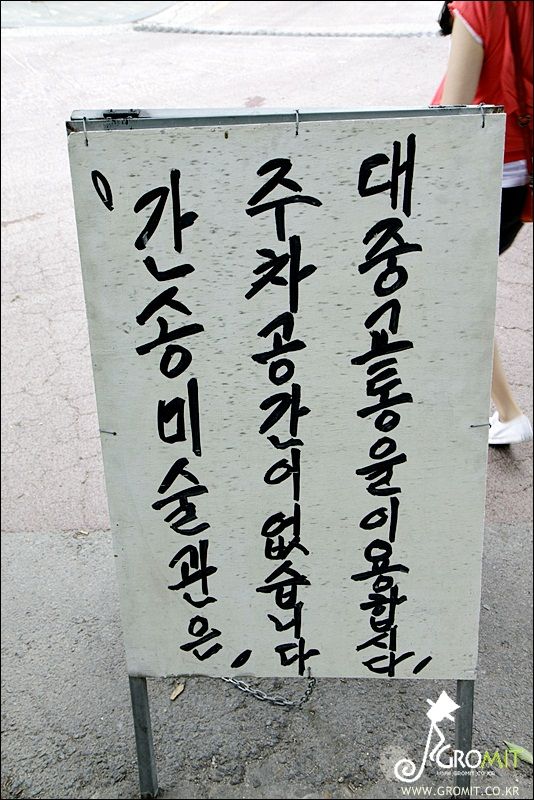 '간송미술관은,
주차공간이없습니다
대중교통을이용합시다,
GROMIT
WWW.GROMIT.CO.KR
WWW.GROMIT.CO.KR